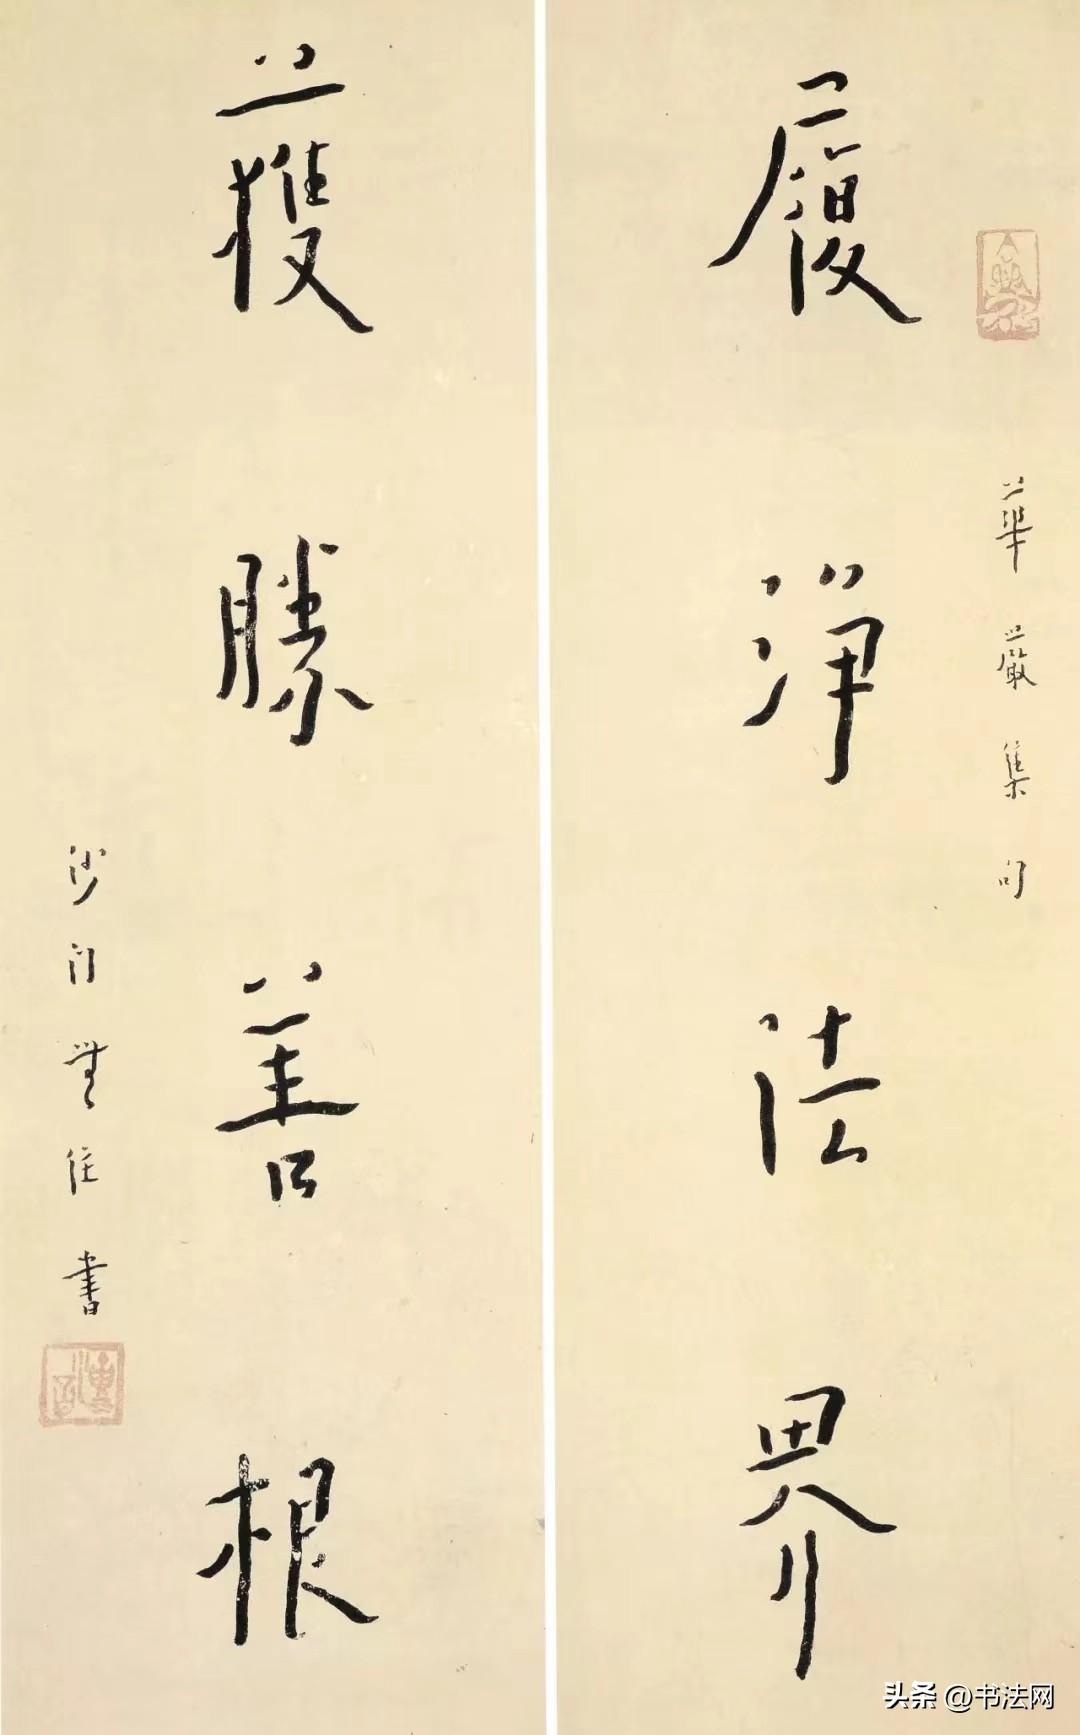 華嚴集句
履淨法界
獲勝善根
沙门無住書
头条 @书法网